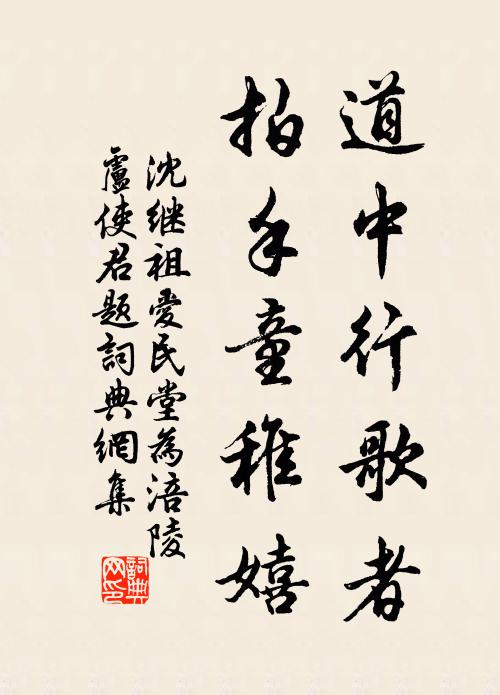 道中行歌者
拍手童稚嬉
沈继祖爱民堂為涪陵
盧使君题詞典網集
詞典網印